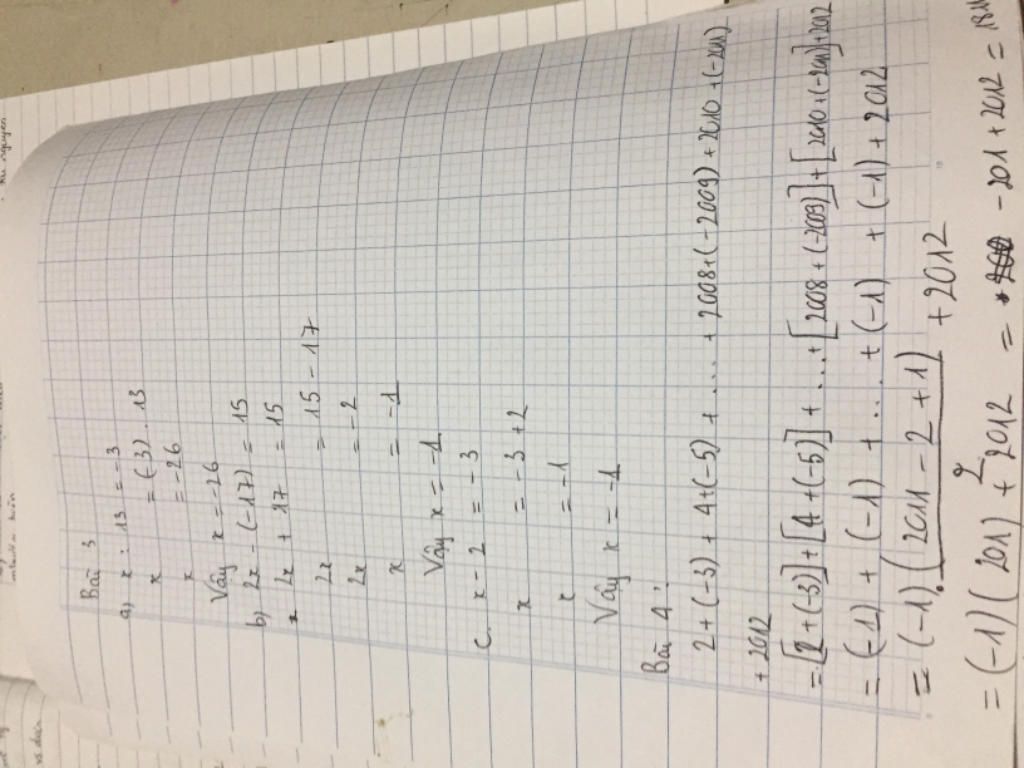 Bài 3
a) x : 13 = -3
x = (-3) . 13
x = -26
Vậy x = -26
b) 2x - (-17) = 15
2x + 17 = 15
2x = 15 - 17
2x = -2
x = -1
Vậy x = -1
c. x - 2 = -3
x = -3 + 2
x = -1
Vậy x = -1
Bài 4:
2 + (-3) + 4 + (-5) + ... + 2008 + (-2009) + 2010 + (-2011)
+ 2012
= [2 + (-3)] + [4 + (-5)] + ... + [2008 + (-2009)] + [2010 + (-2011)] + 2012
= (-1) + (-1) + ... + (-1) + (-1) + 2012
= (-1) . (2011 - 2 + 1) + 2012
2
= (-1) (201) + 2012 = -201 + 2012 = 181